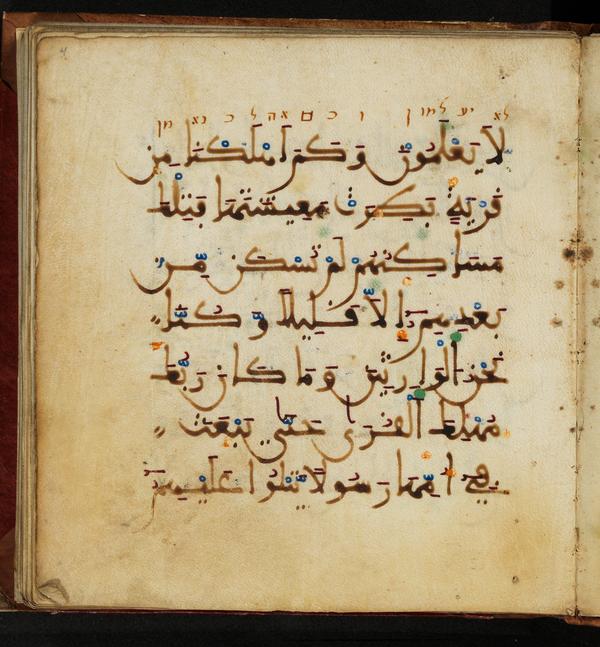 לא יע למון ו כם אה ל כ נא מן
لَا يَعْلَمُونَ وَكَمَ اَهْلَكْنَا مِن
قَرْيَةٍ بَطِرَتْ مَعِيشَتَهَا فَتِلْكَ
مَسَاكِنُهُمْ لَمْ تُسْكَن مِّن
بَعْدِهِمُ إِلَّا قَلِيلًا وَكُنَّا
نَحْنُ الْوَارِثِينَ وَمَا كَانَ رَبُّكَ
مُهْلِكَ الْقُرَى حَتَّى يَبْعَثَ
فِي أُمِّهَا رَسُولًا يَتْلُوا عَلَيْهِمُ